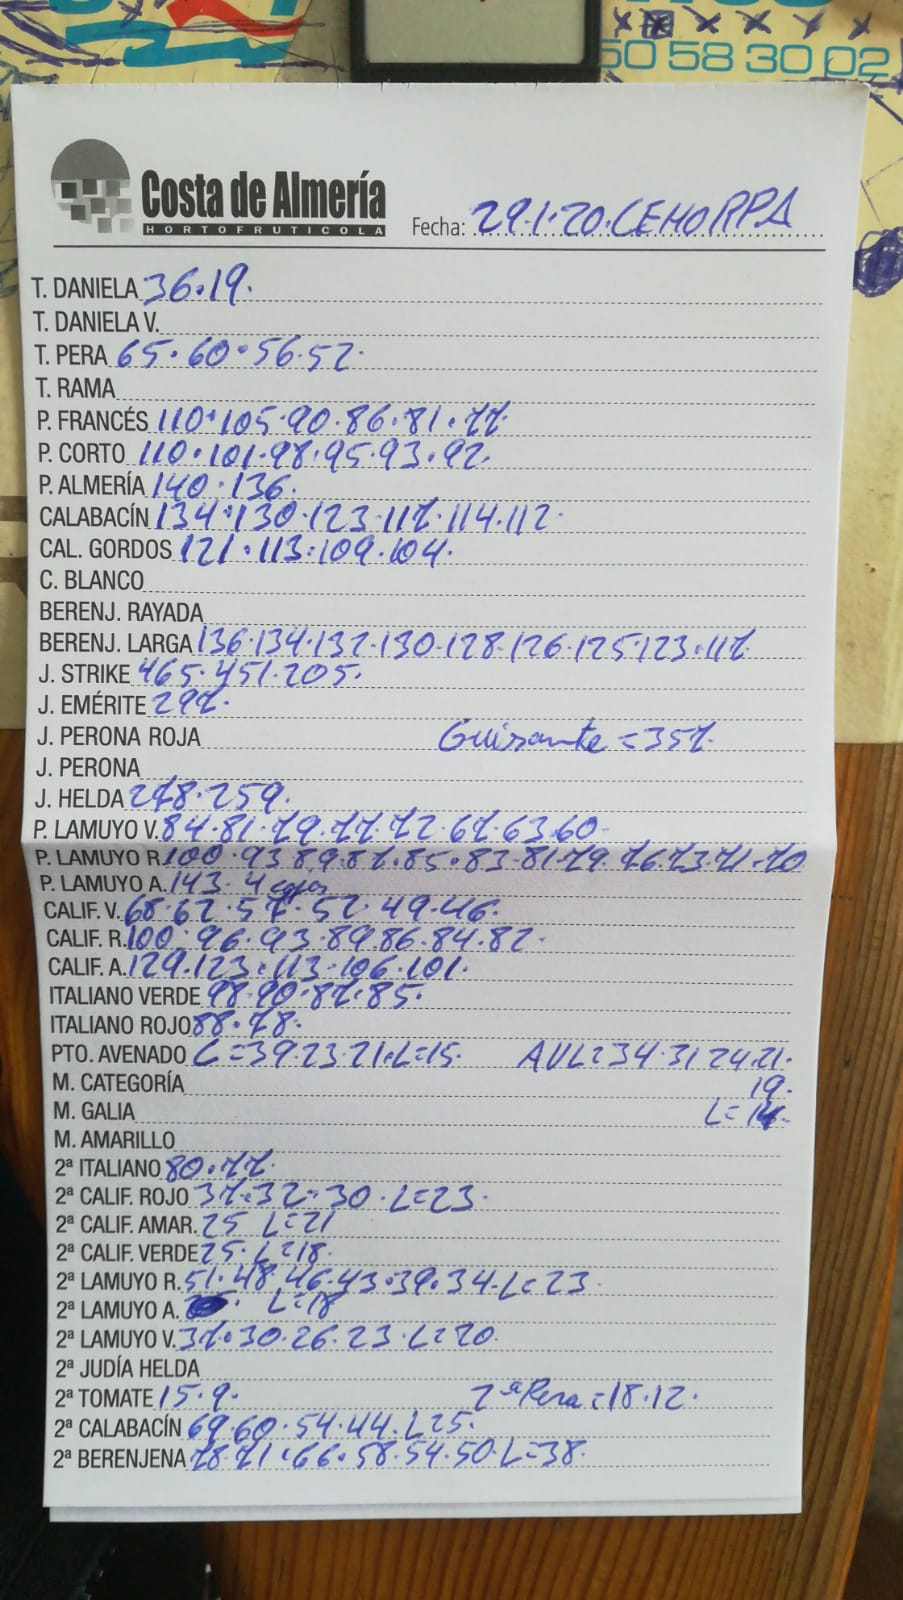 50 58 30 02
Costa de Almería
HORTOFRUTICOLA
Fecha: 29.1.20.CEHORPA
T. DANIELA 36.19.
T. DANIELA V.
T. PERA 65.60.56.52.
T. RAMA
P. FRANCÉS 110.105.90.86.81.77.
P. CORTO 110.101.98.95.93.92.
P. ALMERÍA 140.136.
CALABACÍN 134.130.123.117.114.112.
CAL. GORDOS 121.113.109.104.
C. BLANCO
BERENJ. RAYADA
BERENJ. LARGA 136.134.132.130.128.126.125.123.117.
J. STRIKE 465.451.205.
J. EMÉRITE 297.
J. PERONA ROJA Guisante = 357.
J. PERONA
J. HELDA 278.259.
P. LAMUYO V. 84.81.79.77.72.67.63.60.
P. LAMUYO R. 100.93.89.87.85.83.81.79.76.73.71.70
P. LAMUYO A. 143. 4 cajas
CALIF. V. 68.62.57.52.49.46.
CALIF. R. 100.96.93.89.86.84.82.
CALIF. A. 129.123.113.106.101.
ITALIANO VERDE 98.90.87.85.
ITALIANO ROJO 88.78.
PTO. AVENADO L=39.23.21.L=15. AVL=34.31.24.21.
M. CATEGORÍA 19.
M. GALIA L=14.
M. AMARILLO
2ª ITALIANO 80.77.
2ª CALIF. ROJO 37.32.30. L=23.
2ª CALIF. AMAR. 25 L=21
2ª CALIF. VERDE 25. L=18.
2ª LAMUYO R. 51.48.46.43.39.34.L=23.
2ª LAMUYO A. L=18
2ª LAMUYO V. 37.30.26.23.L=20.
2ª JUDÍA HELDA
2ª TOMATE 15.9. 2ª Pera = 18.12.
2ª CALABACÍN 69.60.54.44.L=25.
2ª BERENJENA 78.71.66.58.54.50.L=38.